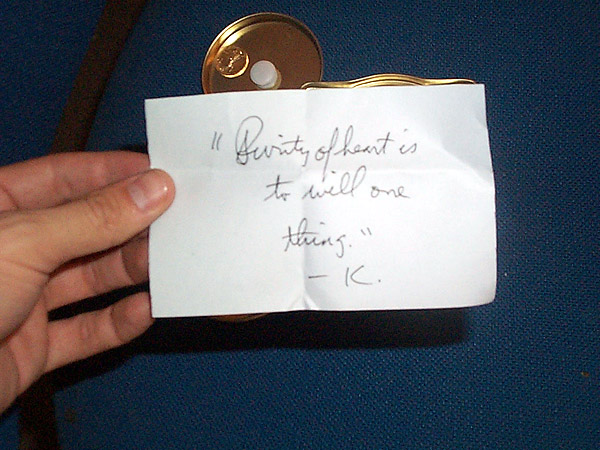 "Purity of heart is
to will one
thing."
– K.